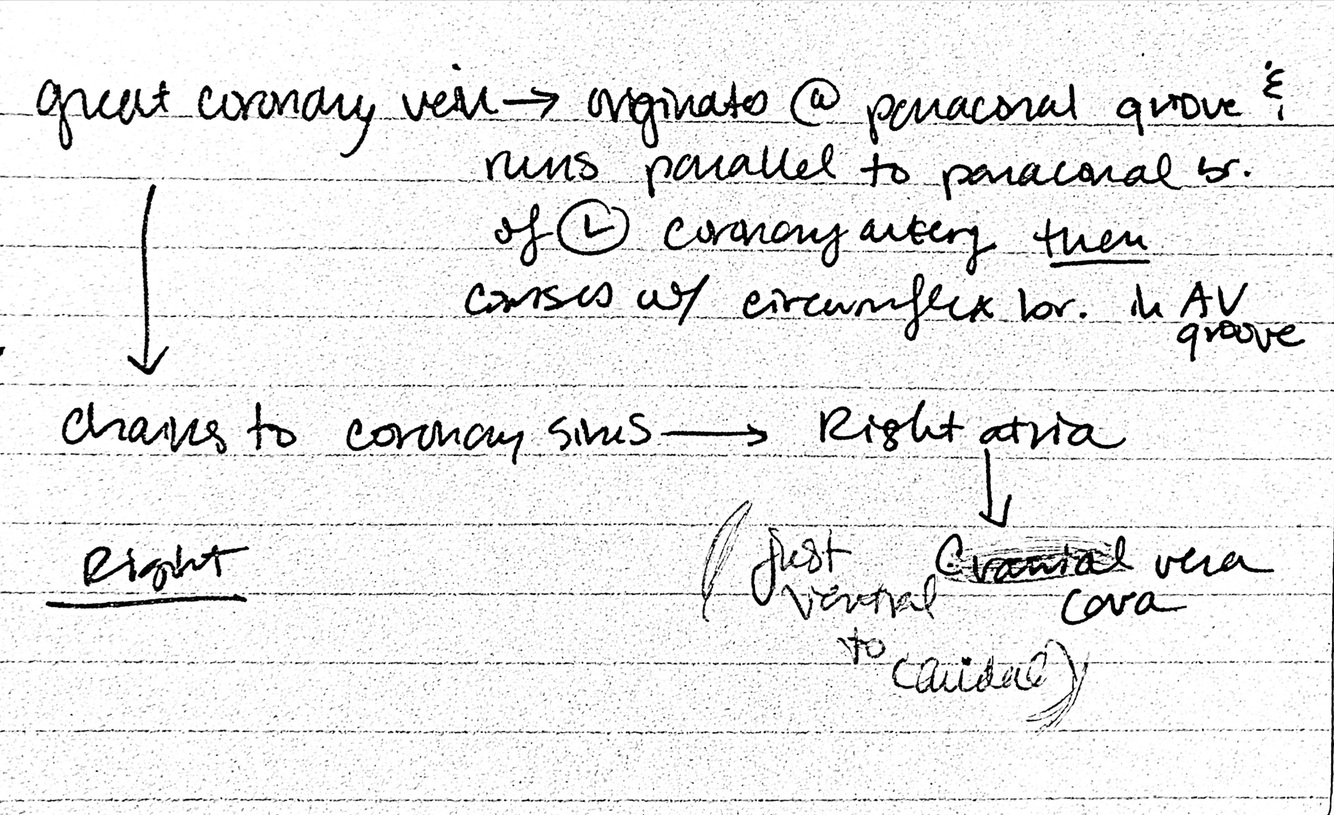 great coronary vein → originates @ paraconal groove &
runs parallel to paraconal br.
of Ⓛ coronary artery then
courses w/ circumflex br. in AV
groove
drains to coronary sinus → Right atria
Right
(just Cranial vena
ventral cava
to
caudal)